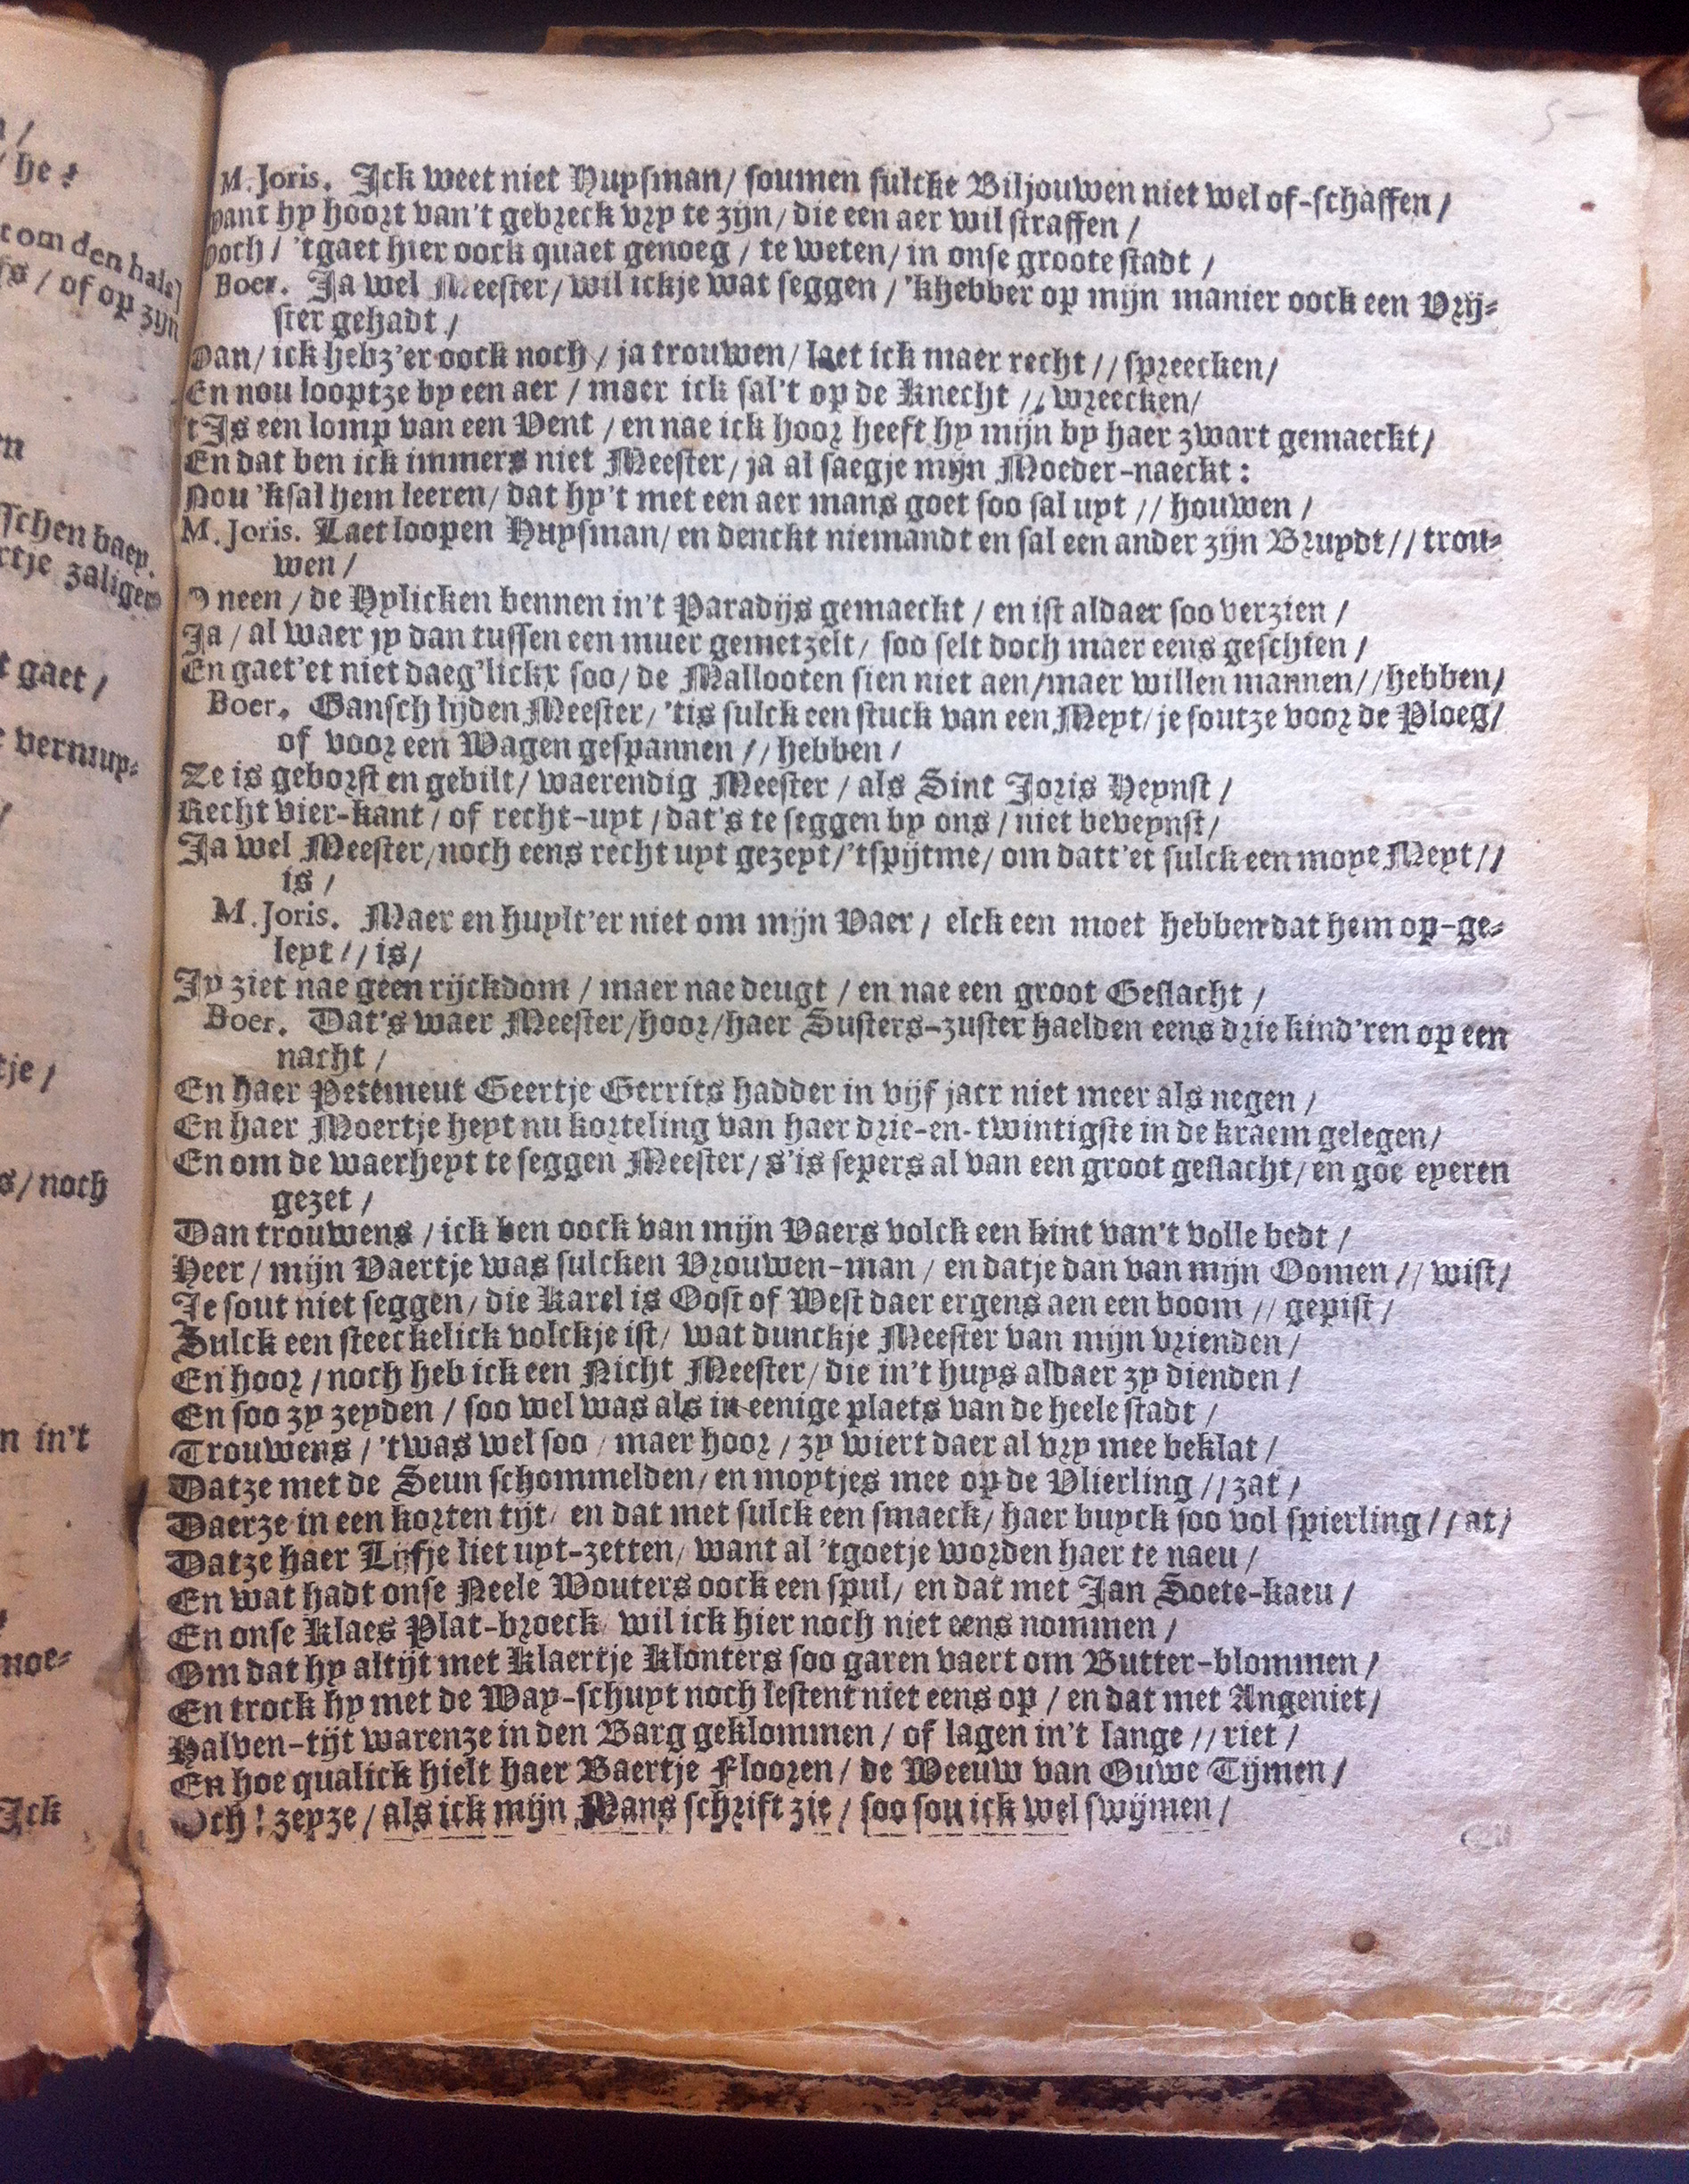 n /
/ he ?
t om den hals]
fs / of op zijn
n
sschen baey.
rtje zaliger
t gaet /
vernuy-
/
tje /
s / noch
n in't
moe-
Ick
5
M. Joris. Ick weet niet Huysman / soumen sulcke Biljouwen niet wel of-schaffen /
want hy hoort van't gebreck vry te zijn / die een aer wil straffen /
och / 'tgaet hier oock quaet genoeg / te weten / in onse groote stadt /
Boer. Ja wel Meester / wil ickje wat seggen / 'khebber op mijn manier oock een Vrij-
ster gehadt /
Dan / ick hebz'er oock noch / ja trouwen / laet ick maer recht // spreecken /
En nou looptze by een aer / maer ick sal't op de Knecht // wreecken /
't Is een lomp van een Vent / en nae ick hoor heeft hy mijn by haer zwart gemaeckt /
En dat ben ick immers niet Meester / ja al saegje mijn Moeder-naeckt :
Nou 'ksal hem leeren / dat hy't met een aer mans goet soo sal uyt // houwen /
M. Joris. Laet loopen Huysman / en denckt niemandt en sal een ander zijn Bruydt // trou-
wen /
O neen / de Hylicken bennen in't Paradijs gemaeckt / en ist aldaer soo verzien /
Ja / al waer jy dan tussen een muer gemetzelt / soo selt doch maer eens geschien /
En gaet'et niet daeg'lickx soo / de Mallooten sien niet aen / maer willen mannen // hebben /
Boer. Gansch lijden Meester / 'tis sulck een stuck van een Meyt / je soutze voor de Ploeg /
of voor een Wagen gespannen // hebben /
Ze is geborst en gebilt / waerendig Meester / als Sint Joris Heynst /
Recht vier-kant / of recht-uyt / dat's te seggen by ons / niet beveynst /
Ja wel Meester / noch eens recht uyt gezeyt / 'tspijtme / om datt'et sulck een moye Meyt //
is /
M. Joris. Maer en huylt'er niet om mijn Vaer / elck een moet hebben dat hem op-ge-
leyt // is /
Jy ziet nae geen rijckdom / maer nae deugt / en nae een groot Geslacht /
Boer. Dat's waer Meester / hoor / haer Susters-zuster haelden eens drie kind'ren op een
nacht /
En haer Petemeut Geertje Gerrits hadder in vijf jaer niet meer als negen /
En haer Moertje heyt nu korteling van haer drie-en-twintigste in de kraem gelegen /
En om de waerheyt te seggen Meester / s'is sepers al van een groot geslacht / en goe eyeren
gezet /
Dan trouwens / ick ben oock van mijn Vaers volck een kint van't volle bedt /
Heer / mijn Vaertje was sulcken Vrouwen-man / en datje dan van mijn Oomen // wist /
Je sout niet seggen / die Karel is Oost of West daer ergens aen een boom // gepist /
Sulck een steeckelick volckje ist / wat dunckje Meester van mijn vrienden /
En hoor / noch heb ick een Nicht Meester / die in't huys aldaer zy dienden /
En soo zy zeyden / soo wel was als in eenige plaets van de heele stadt /
Trouwens / 'twas wel soo / maer hoor / zy wiert daer al vry mee beklat /
Datze met de Seun schommelden / en moytjes mee op de Vlierling // zat /
Daerze in een korten tijt / en dat met sulck een smaeck / haer buyck soo vol spierling // at /
Datze haer Lijfje liet uyt-zetten / want al 'tgoetje worden haer te naeu /
En wat hadt onse Neele Wouters oock een spul / en dat met Jan Soete-kaeu /
En onse Klaes Plat-broeck / wil ick hier noch niet eens nommen /
Om dat hy altijt met Klaertje Klonters soo garen vaert om Butter-blommen /
En trock hy met de Way-schuyt noch lestent niet eens op / en dat met Angeniet /
Halven-tijt warenze in den Barg geklommen / of lagen in't lange // riet /
En hoe qualick hielt haer Baertje Flooren / de Weeuw van Ouwe Tijmen /
Och ! zeyze / als ick mijn Mans schrift zie / soo sou ick wel swijmen /